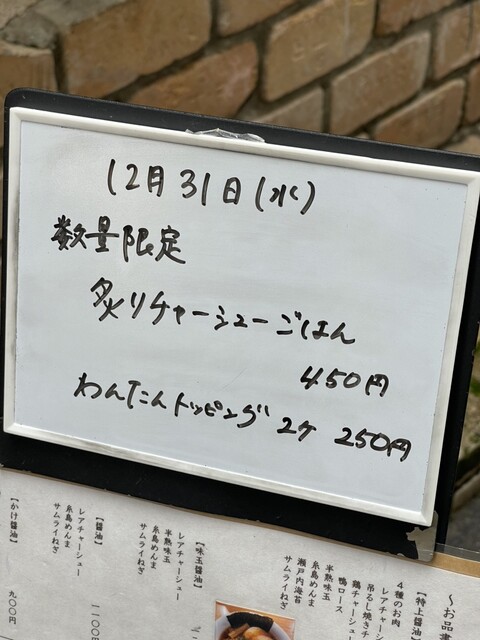 12月31日(水)
数量限定
炙りチャーシューごはん
450円
わんたんトッピング 2ケ 250円
～お品書
【特上醤油】
4種のお肉
レアチャーシュ
吊るし焼き
鶏チャーシュ
鴨ロース
半熟味玉
糸島めんま
瀬戸内海苔
サムライねぎ
【味玉醤油】
レアチャーシュー
半熟味玉
糸島めんま
サムライねぎ
【醤油】
レアチャーシュー
糸島めんま
サムライねぎ
【かけ醤油】
サムライねぎ
九〇〇円